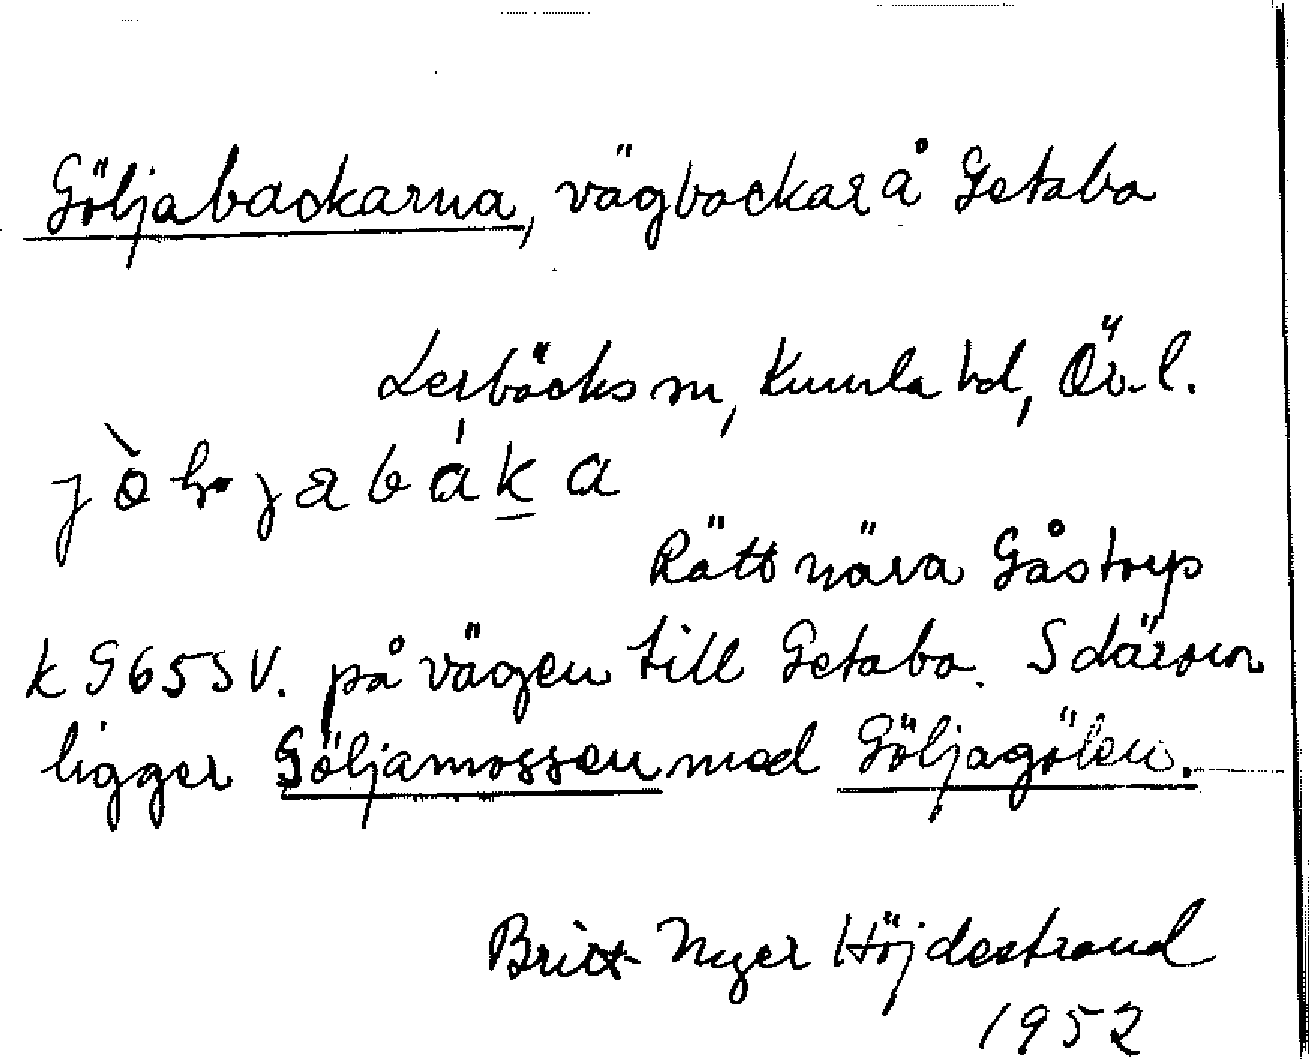 Göljabackarna, vägbackar å Getabo
Lerbäcks sn, Kumla hd, Ör. l.
Rätt nära Gåstorp
k G65SV. på vägen till Getabo. S därom
ligger Göljamossen med Göljagölen.
Britt Nyer Höjdestrand
1952